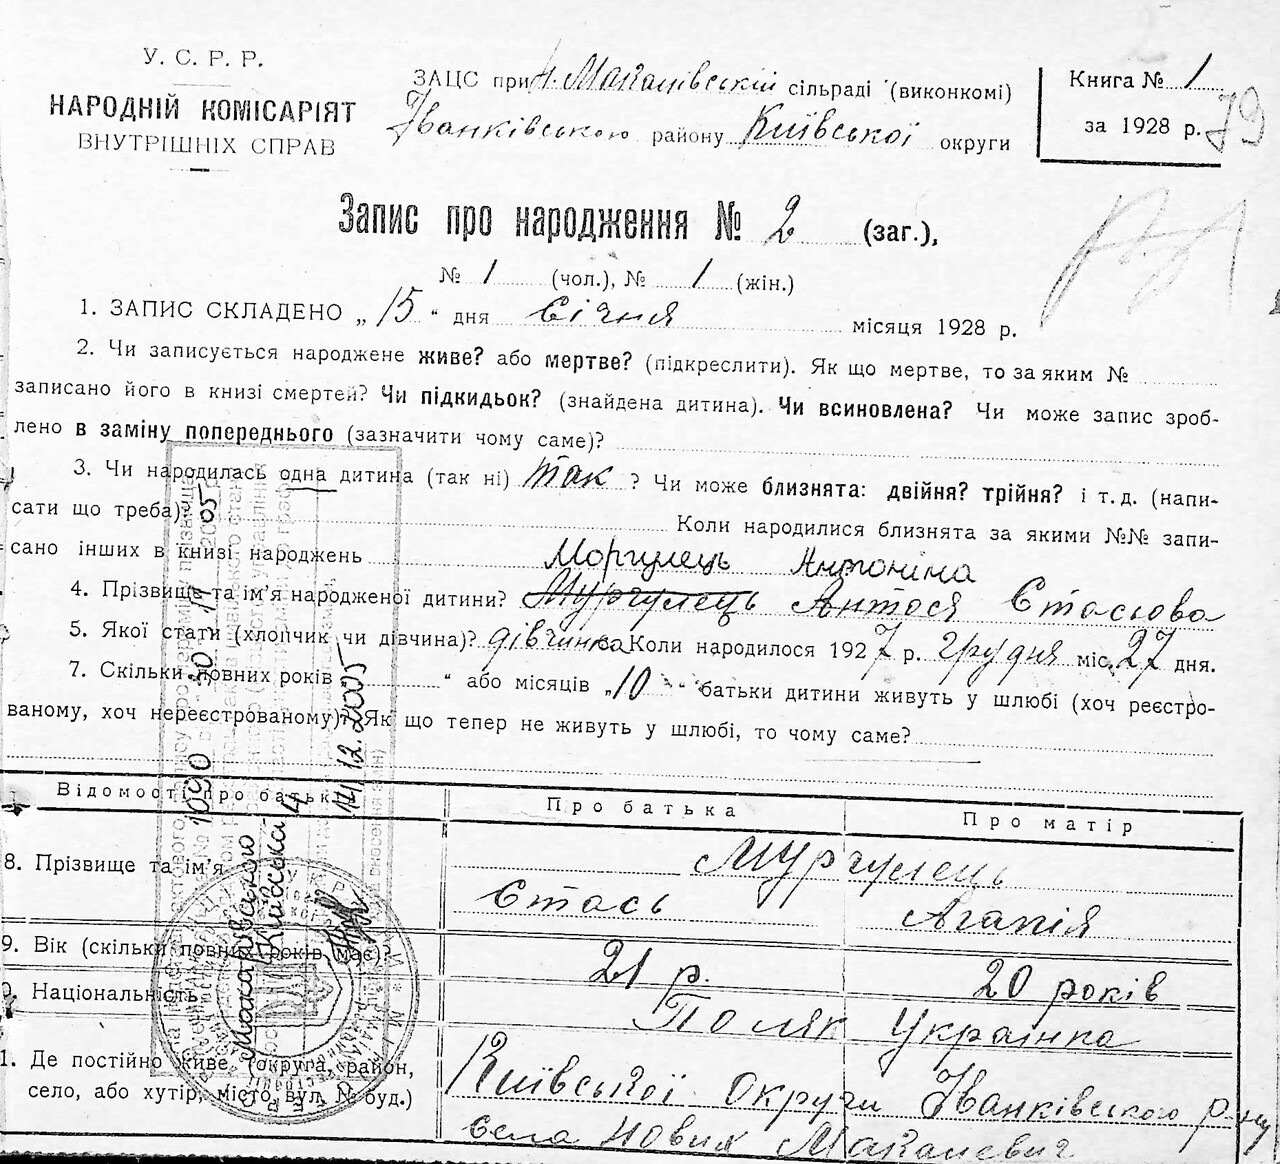 У. С. Р. Р.
НАРОДНІЙ КОМІСАРІЯТ
ВНУТРІШНІХ СПРАВ
ЗАЦС при Н. Макалівській сільраді (виконкомі)
Іванківською району Київської округи
Книга № 1
за 1928 р.
79
Запис про народження № 2 (заг.),
№ 1 (чол.), № 1 (жін.)
1. ЗАПИС СКЛАДЕНО „ 15 " дня Січня місяця 1928 р.
2. Чи записується народжене живе? або мертве? (підкреслити). Як що мертве, то за яким №
записано його в книзі смертей? Чи підкидьок? (знайдена дитина). Чи всиновлена? Чи може запис зроб-
лено в заміну попереднього (зазначити чому саме)?
3. Чи народилась одна дитина (так ні) так ? Чи може близнята: двійня? трійня? і т. д. (напи-
сати що треба)? Коли народилися близнята за якими №№ запи-
сано інших в книзі народжень Моргулець Антоніна
4. Прізвище та ім'я народженої дитини? Мургулець Антося Стасьова
5. Якої стати (хлопчик чи дівчина)? дівчинка Коли народилося 1927 р. грудня міс. 27 дня.
7. Скільки повних років „ " або місяців „ 10 " батьки дитини живуть у шлюбі (хоч реєстро-
ваному, хоч нереєстрованому)? Як що тепер не живуть у шлюбі, то чому саме?
Відомості про батьків
Про батька
Про матір
8. Прізвище та ім'я
Мургулець
Стась
Агапія
9. Вік (скільки повних років має)?
21 р.
20 років
0. Національність
Поляк
Українка
1. Де постійно живе (округа, район,
село, або хутір, місто, вул. № буд.)
Київської округи Іванківського р-ну
Села Нових Макалевич
№ 1090
2005
14.12.2005
Макарівського
Київська